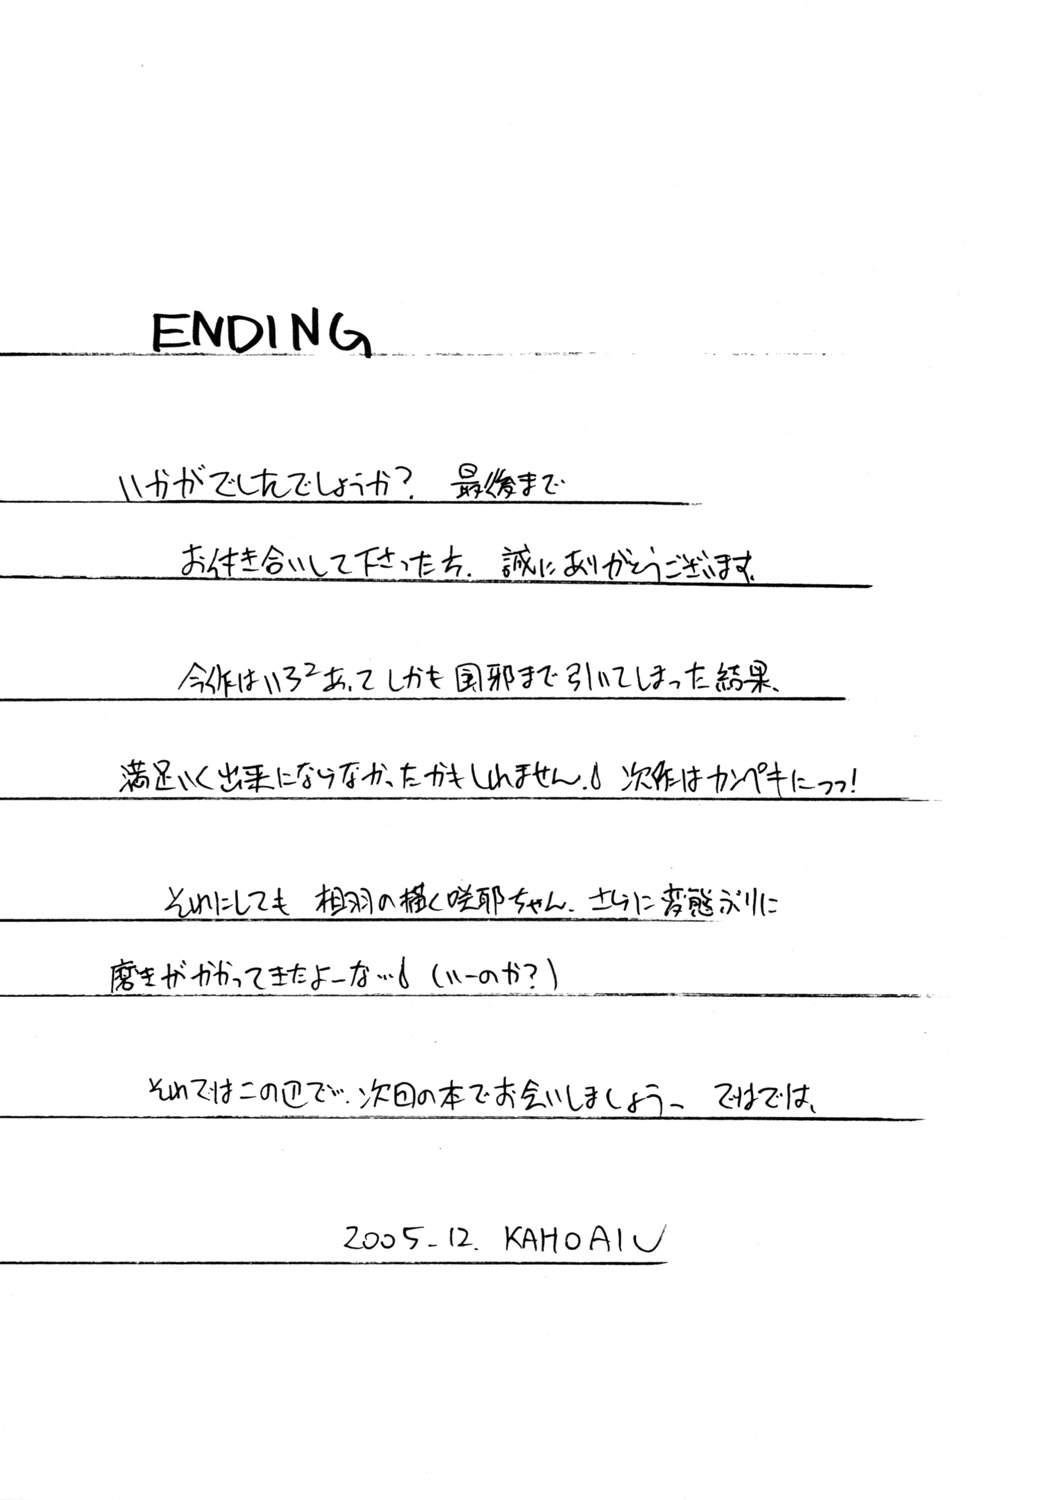 ENDING
いかがでしたでしょうか? 最後まで
お付き合いして下さった方、誠にありがとうございます。
今作はいろ²あってしかも風邪まで引いてしまった結果、
満足いく出来にならなかったかもしれません。 次作はカンペキにっっ!
それにしても 相羽の描く咲耶ちゃん、さらに変態ぶりに
磨きがかかってきたよーな… (いーのか?)
それではこの辺で、次回の本でお会いしましょう〜 ではでは、
2005-12. KAHO AIU